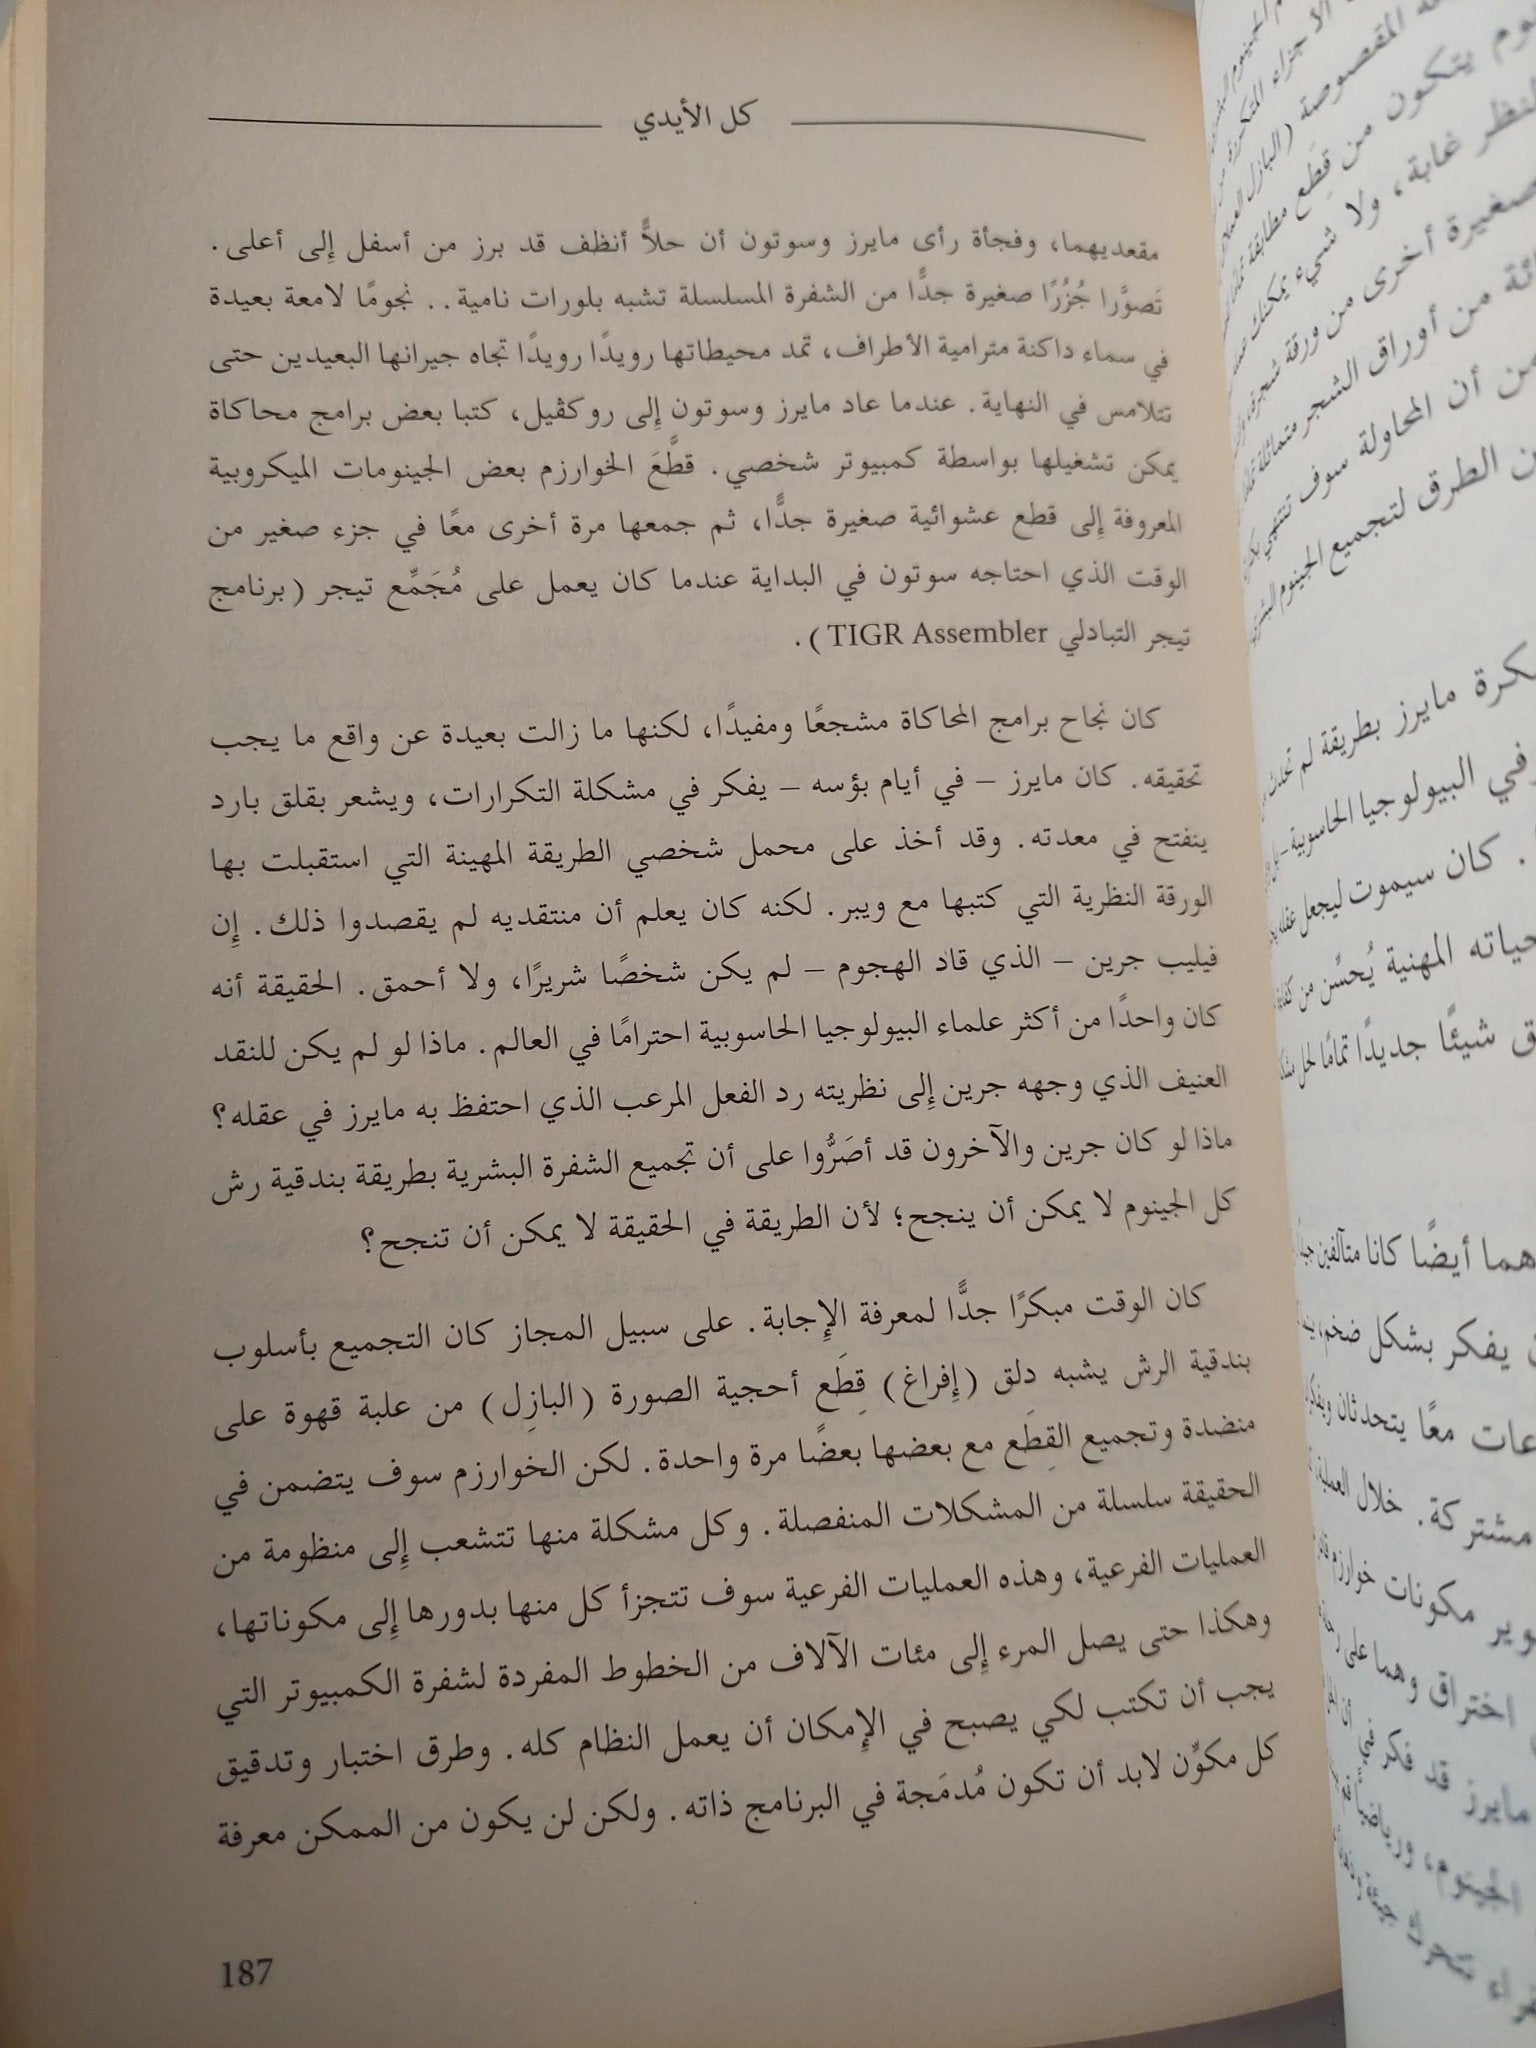 كل الأيدي
مقعديهما، وفجأة رأى مايرز وسوتون أن حلاًّ أنظف قد برز من أسفل إِلى أعلى.
تَصوَّرا جُزُرًا صغيرة جدًّا من الشفرة المسلسلة تشبه بلورات نامية.. نجومًا لامعة بعيدة
في سماء داكنة مترامية الأطراف، تمد محيطاتها رويدًا رويدًا تجاه جيرانها البعيدين حتى
تتلامس في النهاية. عندما عاد مايرز وسوتون إِلى روكڤيل، كتبا بعض برامج محاكاة
يمكن تشغيلها بواسطة كمبيوتر شخصي. قطَّعَ الخوارزم بعض الجينومات الميكروبية
المعروفة إِلى قطع عشوائية صغيرة جدًّا، ثم جمعها مرة أخرى معًا في جزء صغير من
الوقت الذي احتاجه سوتون في البداية عندما كان يعمل على مُجَمِّع تيجر (برنامج
تيجر التبادلي TIGR Assembler).
كان نجاح برامج المحاكاة مشجعًا ومفيدًا، لكنها ما زالت بعيدة عن واقع ما يجب
تحقيقه. كان مايرز – في أيام بؤسه – يفكر في مشكلة التكرارات، ويشعر بقلق بارد
ينفتح في معدته. وقد أخذ على محمل شخصي الطريقة المهينة التي استقبلت بها
الورقة النظرية التي كتبها مع ويبر. لكنه كان يعلم أن منتقديه لم يقصدوا ذلك. إِن
فيليب جرين – الذي قاد الهجوم – لم يكن شخصًا شريرًا، ولا أحمق. الحقيقة أنه
كان واحدًا من أكثر علماء البيولوجيا الحاسوبية احترامًا في العالم. ماذا لو لم يكن للنقد
العنيف الذي وجهه جرين إِلى نظريته رد الفعل المرعب الذي احتفظ به مايرز في عقله؟
ماذا لو كان جرين والآخرون قد أصَرُّوا على أن تجميع الشفرة البشرية بطريقة بندقية رش
كل الجينوم لا يمكن أن ينجح؛ لأن الطريقة في الحقيقة لا يمكن أن تنجح؟
كان الوقت مبكرًا جدًّا لمعرفة الإِجابة. على سبيل المجاز كان التجميع بأسلوب
بندقية الرش يشبه دلق (إِفراغ) قِطَع أحجية الصورة (البازِل) من علبة قهوة على
منضدة وتجميع القِطَع مع بعضها بعضًا مرة واحدة. لكن الخوارزم سوف يتضمن في
الحقيقة سلسلة من المشكلات المنفصلة. وكل مشكلة منها تتشعب إِلى منظومة من
العمليات الفرعية، وهذه العمليات الفرعية سوف تتجزأ كل منها بدورها إِلى مكوناتها،
وهكذا حتى يصل المرء إِلى مئات الآلاف من الخطوط المفردة لشفرة الكمبيوتر التي
يجب أن تكتب لكي يصبح في الإِمكان أن يعمل النظام كله. وطرق اختبار وتدقيق
كل مكوِّن لابد أن تكون مُدمَجة في البرنامج ذاته. ولكن لن يكون من الممكن معرفة
187
المقصوصة (البازل
يتكون من قِطَع مطابقة
النظر غابة، ولا شيء يمكنك
صغيرة أخرى من ورقة شجرة
من أوراق الشجر متماثلة
من أن المحاولة سوف تنتهي
الطرق لتجميع الجينوم
مايرز بطريقة لم تحدث
في البيولوجيا الحاسوبية
. كان سيموت ليجعل عقله
حياته المهنية يُحسِّن من
شيئًا جديدًا تمامًا لحل
هما أيضًا كانا متآلفين
يفكر بشكل ضخم،
معًا يتحدثان
مشتركة. خلال العملية
مكونات خوارزم
اختراق وهما على
مايرز قد فكر في
الجينوم، ورياضيا
تتحرك